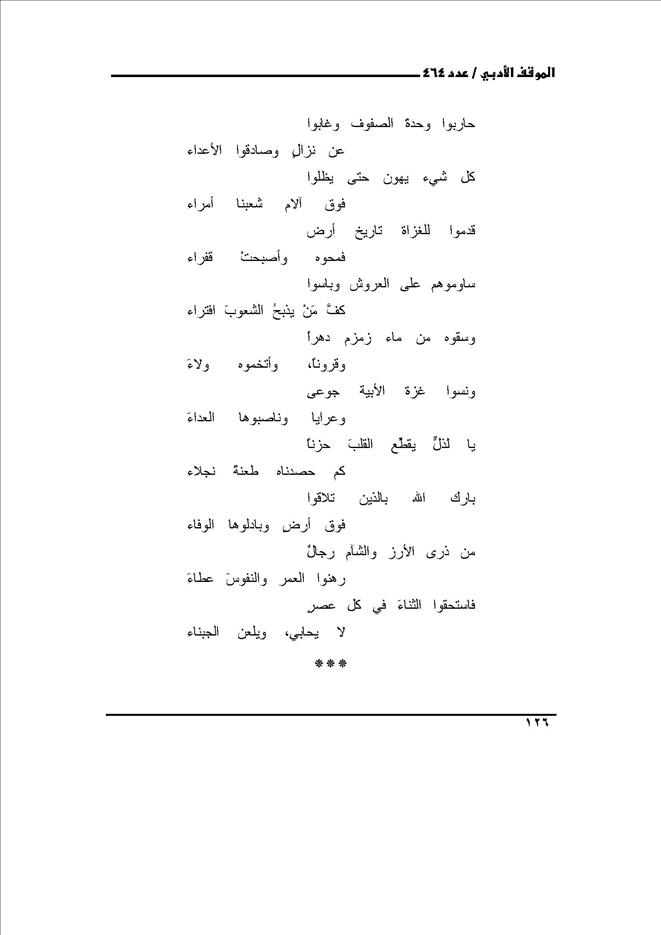 الموقف الأدبي / عدد ٤٦٤
حاربوا وحدة الصفوف وغابوا
عن نزالٍ وصادقوا الأعداء
كل شيء يهون حتى يظلوا
فوق آلام شعبنا أمراء
قدموا للغزاة تاريخ أرض
فمحوه وأصبحتْ قفراء
ساوموهم على العروش وباسوا
كفَّ مَنْ يذبحُ الشعوبَ افتراء
وسقوه من ماء زمزم دهراً
وقروناً، وأتخموه ولاءَ
ونسوا غزة الأبية جوعى
وعرايا وناصبوها العداءَ
يا لذلٍّ يقطّع القلبَ حزناً
كم حصدناه طعنةً نجلاء
بارك الله بالذين تلاقوا
فوق أرضٍ وبادلوها الوفاء
من ذرى الأرز والشآم رجالٌ
رهنوا العمر والنفوسَ عطاءَ
فاستحقوا الثناءَ في كل عصرٍ
لا يحابي، ويلعن الجبناء
***
١٢٦